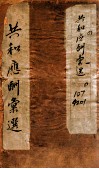 共和應酬彙選
共和應酬彙選
107
4201